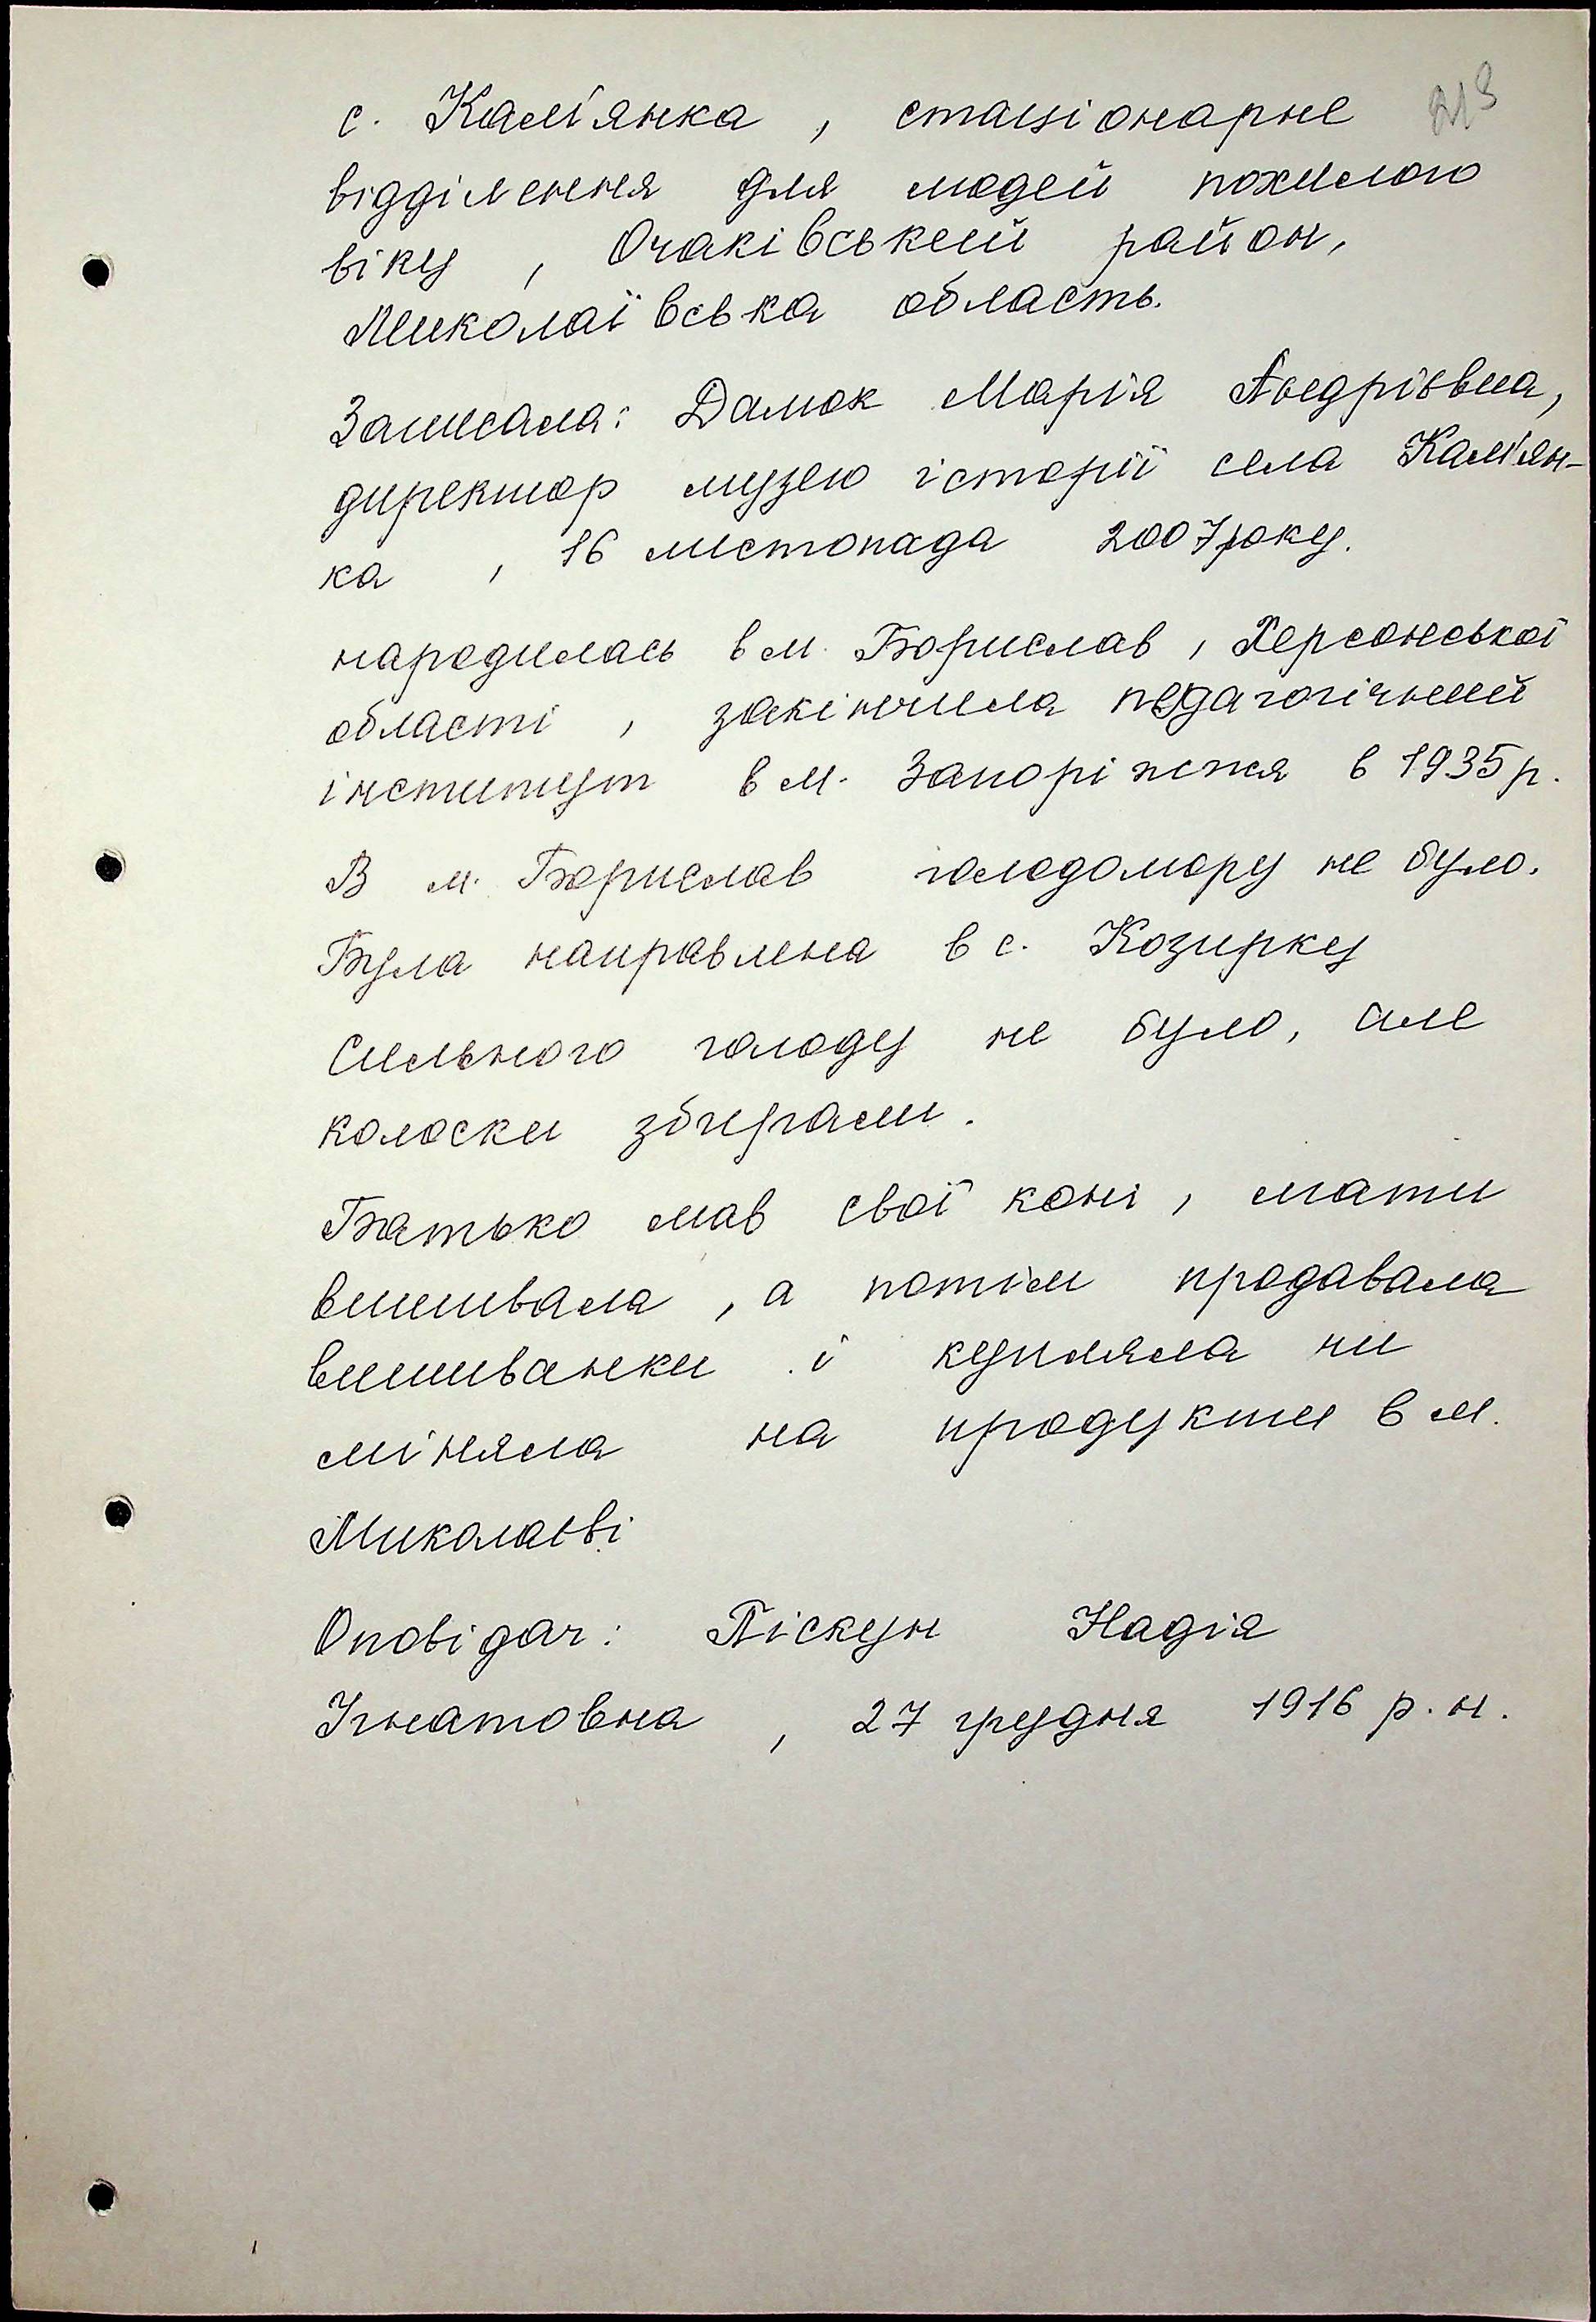 213
с. Кам'янка, стаціонарне
відділення для людей похилого
віку, Очаківський район,
Миколаївська область.
Записала: Дамок Марія Андріївна,
директор музею історії села Кам'ян-
ка, 16 листопада 2007 року.
народилась в м. Борислав, Херсонської
області, закінчила педагогічний
інститут в м. Запоріжжя в 1935 р.
В м. Борислав голодомору не було.
Була направлена в с. Козирку
Сильного голоду не було, але
колоски збирали.
Батько мав свої коні, мати
вишивала, а потім продавала
вишиванки і купляла чи
міняла на продукти в м.
Миколаєві
Оповідач: Піскун Надія
Ігнатовна, 27 грудня 1916 р.н.